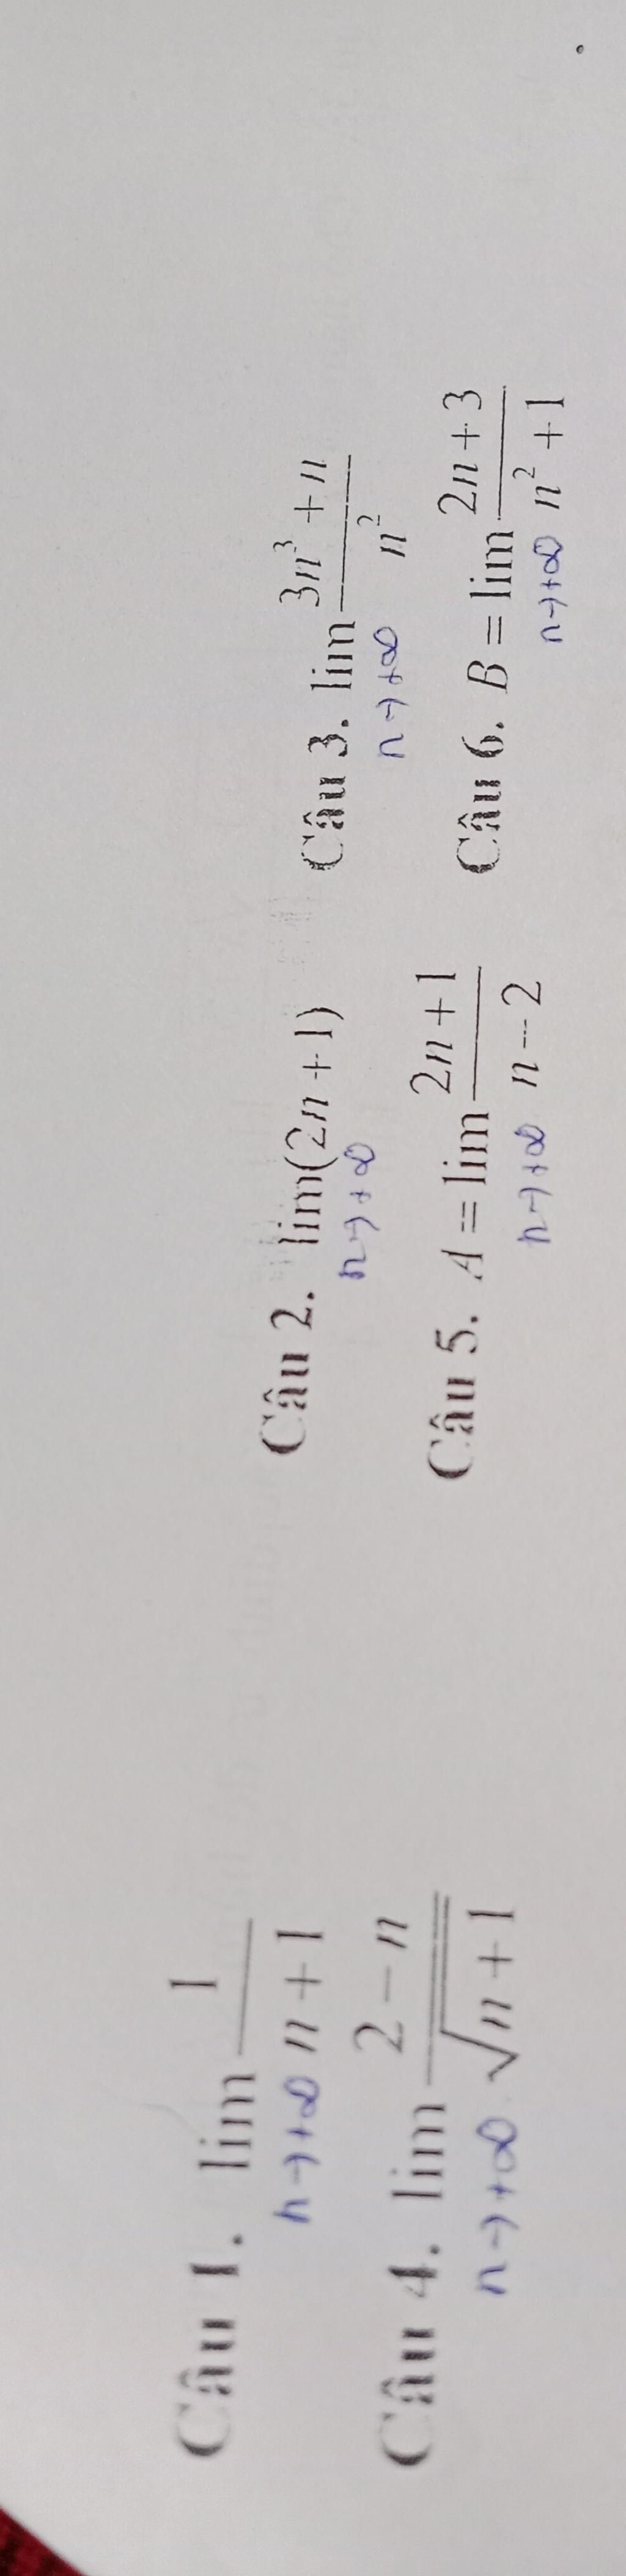 Câu 1. lim 1/(n+1) n→+∞
Câu 2. lim(2n+1) n→+∞
Câu 3. lim (3n³+n)/n² n→+∞
Câu 4. lim (2−n)/√(n+1) n→+∞
Câu 5. A = lim (2n+1)/(n−2) n→+∞
Câu 6. B = lim (2n+3)/(n²+1) n→+∞